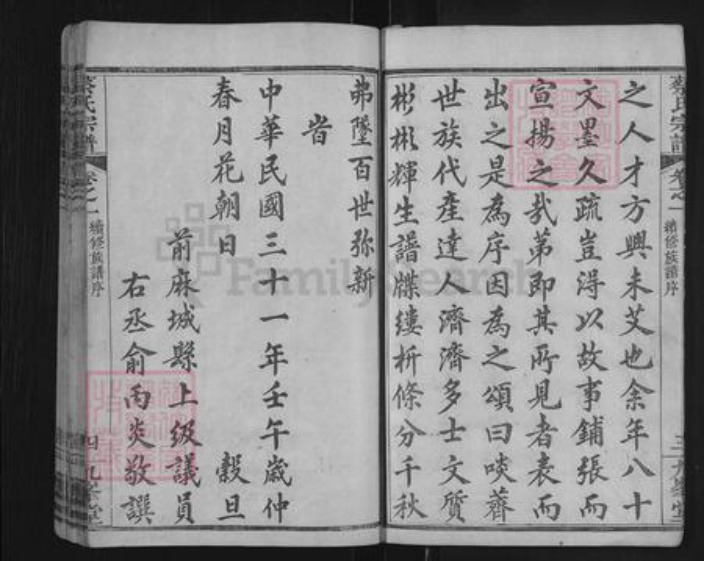 蔡氏宗譜
卷之一
續修族譜序
三
九峯堂
之人才方興未艾也余年八十
文墨久疏豈淂以故事鋪張而
宣揚之㢤苐即其所見者表而
出之是為序因為之頌曰啖薺
世族代產達人濟濟多士文質
彬彬輝生譜牒縷枡條分千秋
弗墜百世弥新
旹
中華民國三十一年壬午歲仲
春月花朝日 穀旦
前麻城縣上級議員
右丞俞丙炎敬譔
蔡氏宗譜
卷之一
續修族譜序
四
九峯堂
FamilySearch